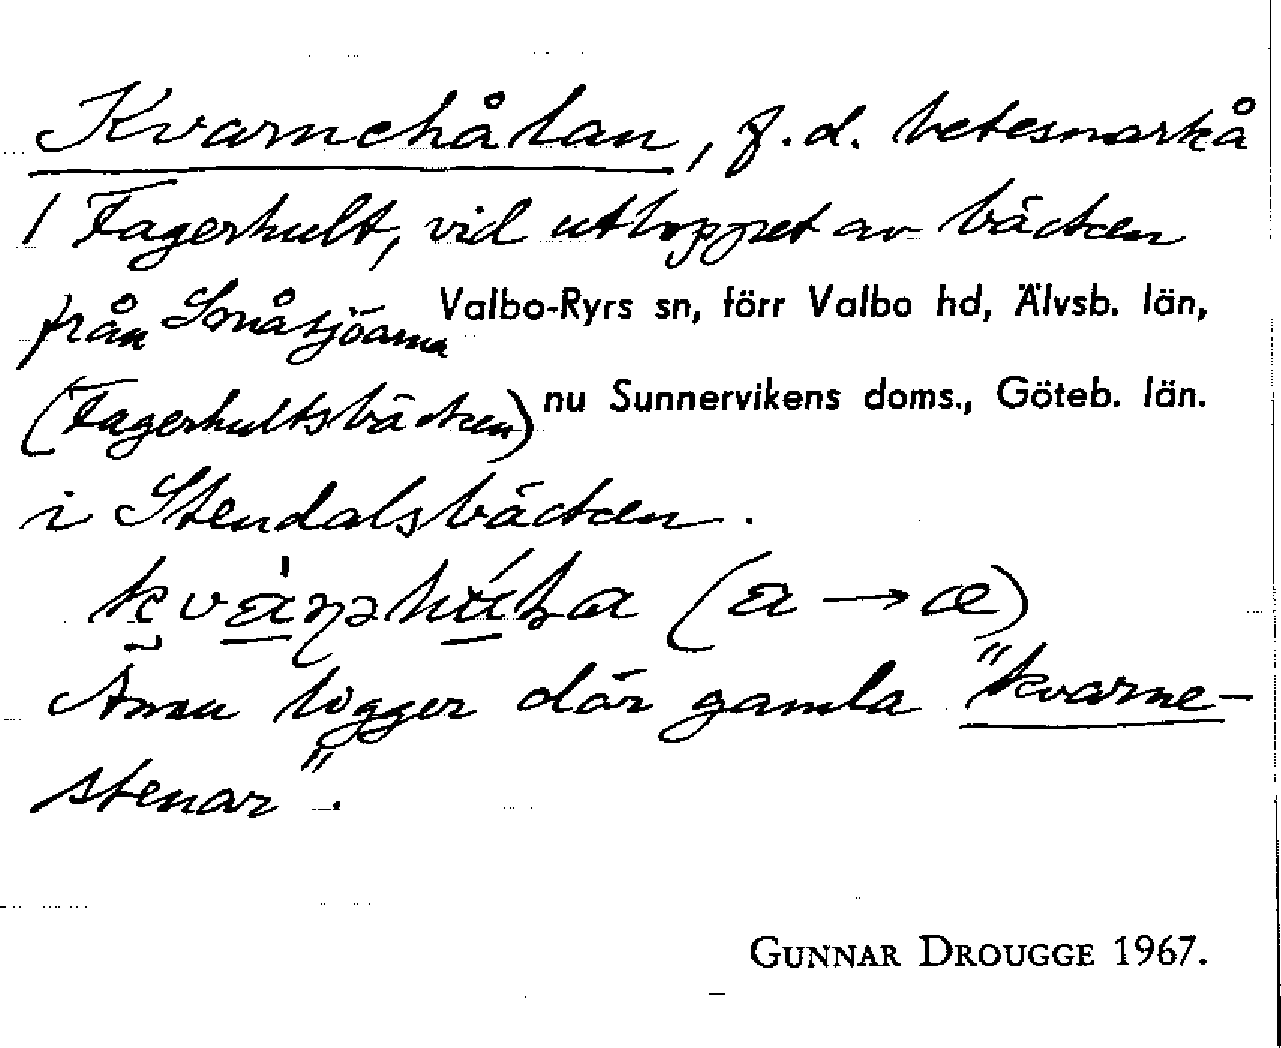 Kvarnehålan, f.d. betesmark å
1 Fagerhult, vid utloppet av bäcken
från Småsjöarna Valbo-Ryrs sn, förr Valbo hd, Älvsb. län,
(Fagerhultsbäcken) nu Sunnervikens doms., Göteb. län.
i Stendalsbäcken.
(a → æ)
Ännu ligger där gamla "kvarne-
stenar".
GUNNAR DROUGGE 1967.